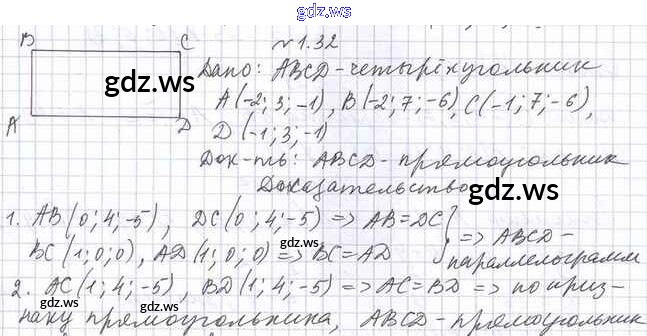 gdz.ws
B C №1.32
gdz.ws Дано: ABCD-четырёхугольник
A(-2; 3; -1), B(-2; 7; -6), C(-1; 7; -6),
A D D(-1; 3; -1)
Док-ть: ABCD-прямоугольник
Доказательство
gdz.ws
1. AB(0; 4; -5), DC(0; 4; -5) => AB=DC
gdz.ws
BC(1; 0; 0), AD(1; 0; 0) => BC=AD } => ABCD-
параллелограмм
2. AC(1; 4; -5), BD(1; 4; -5) => AC=BD => по приз-
gdz.ws gdz.ws
наку прямоугольника, ABCD-прямоугольник